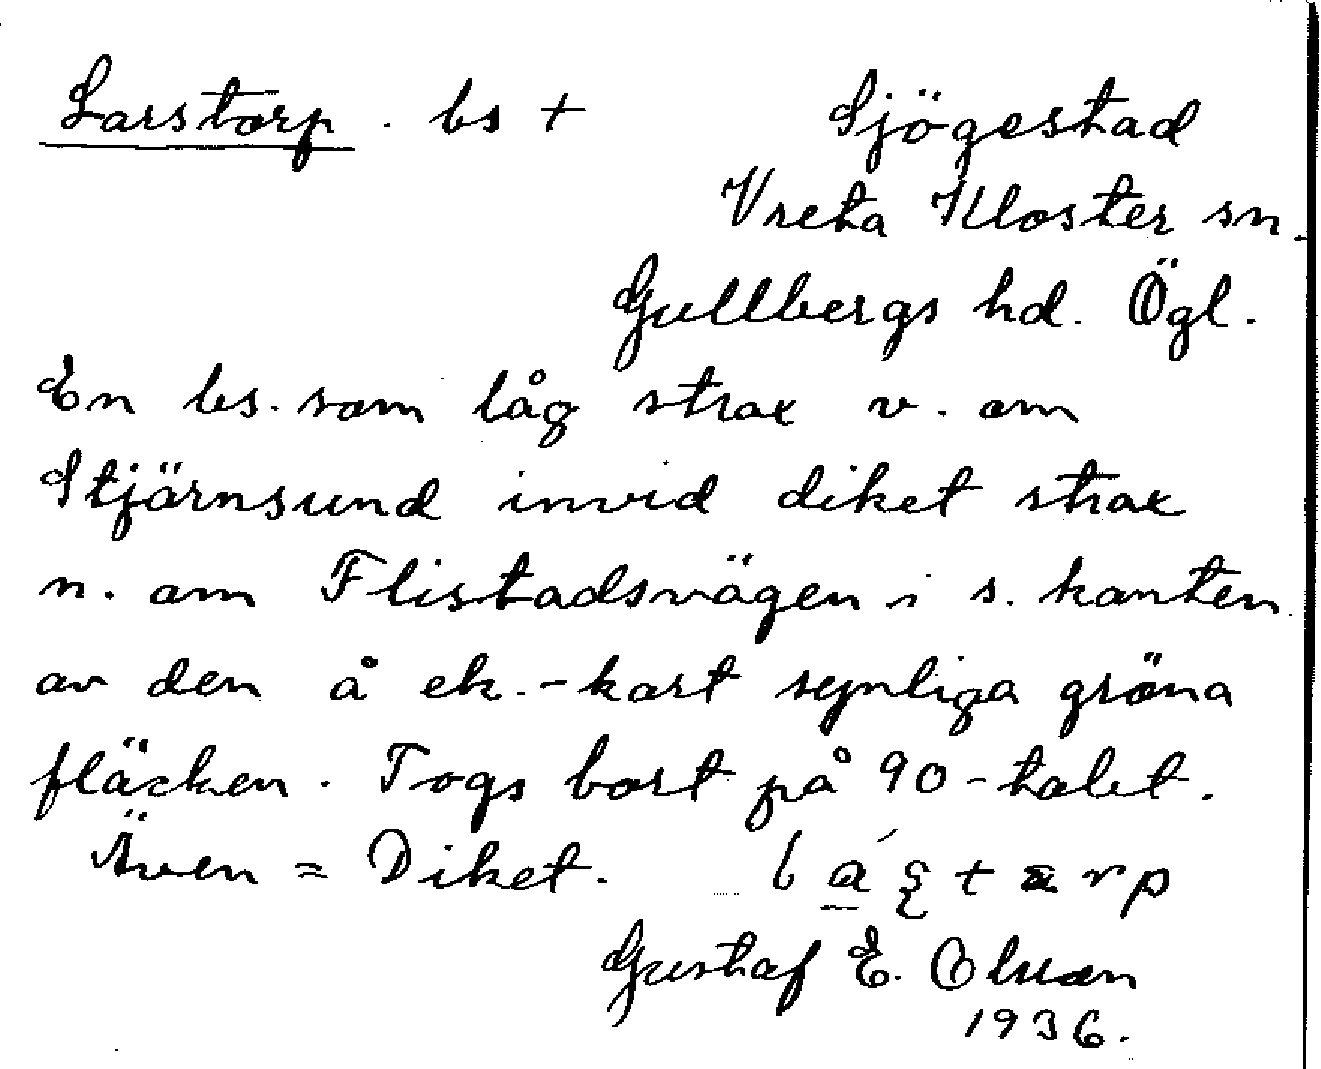 Larstorp . bs + Sjögestad
Vreta Kloster sn.
Gullbergs hd. Ögl.
En bs. som låg strax v. om
Stjärnsund invid diket strax
n. om Flistadsvägen i s. kanten
av den å ek.-kart synliga gröna
fläcken. Togs bort på 90-talet.
Även = Diket.
Gustaf E.
1936.